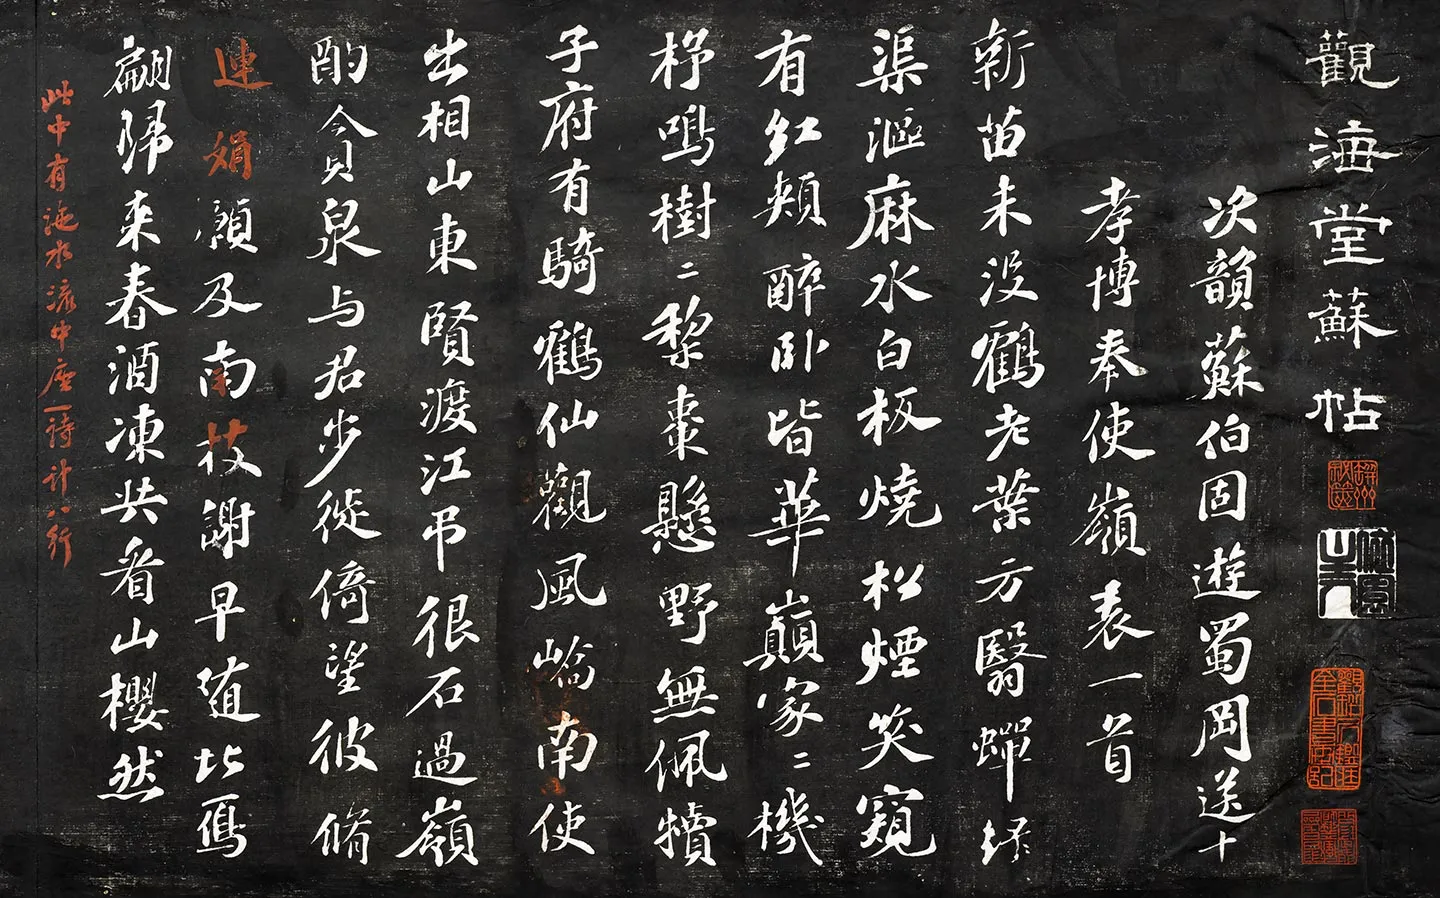 觀海堂蘇帖
次韻蘇伯固遊蜀岡送十
孝博奉使嶺表一首
新苗未没鶴老葉方翳蟬
渠漚麻水白板燒松煙笑窺
有紅頰醉卧皆華巔家二機
杼鳴樹二黎棗懸野無佩犢
子府有騎鶴仙觀風嶠南使
出相山東賢渡江弔很石過嶺
酌貪泉与君步徙倚望彼脩
連娟願及南枝謝早隨北鴈
翩歸来春酒凍共看山櫻然
此中有池水流中座一詩計八行